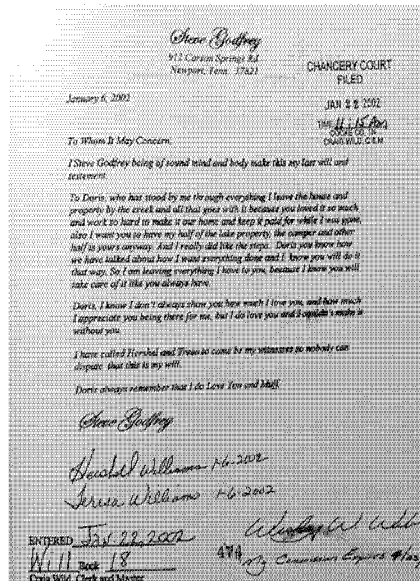 Steve Godfrey
912 Carson Springs Rd
Newport, Tenn. 37821
CHANCERY COURT
FILED
JAN 22 2002
TIME 11:15 Am
COCKE CO. TN
CRAIG WILD, C & M
January 6, 2002
To Whom It May Concern,
I Steve Godfrey being of sound mind and body make this my last will and
testement.
To Doris, who has stood by me through everything I leave the house and
property by the creek and all that goes with it because you loved it so much
and work so hard to make it our home and keep it paid for while I was gone,
also I want you to have my half of the lake property, the camper and other
half is yours anyway. And I really did like the steps. Doris you know how
we have talked about how I want everything done and I know you will do it
that way. So I am leaving everything I have to you, because I know you will
take care of it like you always have.
Doris, I know I don't always show you how much I love you, and how much
I appreciate you being there for me, but I do love you and I couldn't make it
without you.
I have called Hershel and to come be my witnesses so nobody can
dispute that this is my will.
Doris always remember that I do Love You and
Steve Godfrey
Hershel Williams 1-6-2002
Teresa Williams 1-6-2002
ENTERED JAN 22, 2002
Will Book 18
474
My Commission Expires
Craig Wild, Clerk and Master